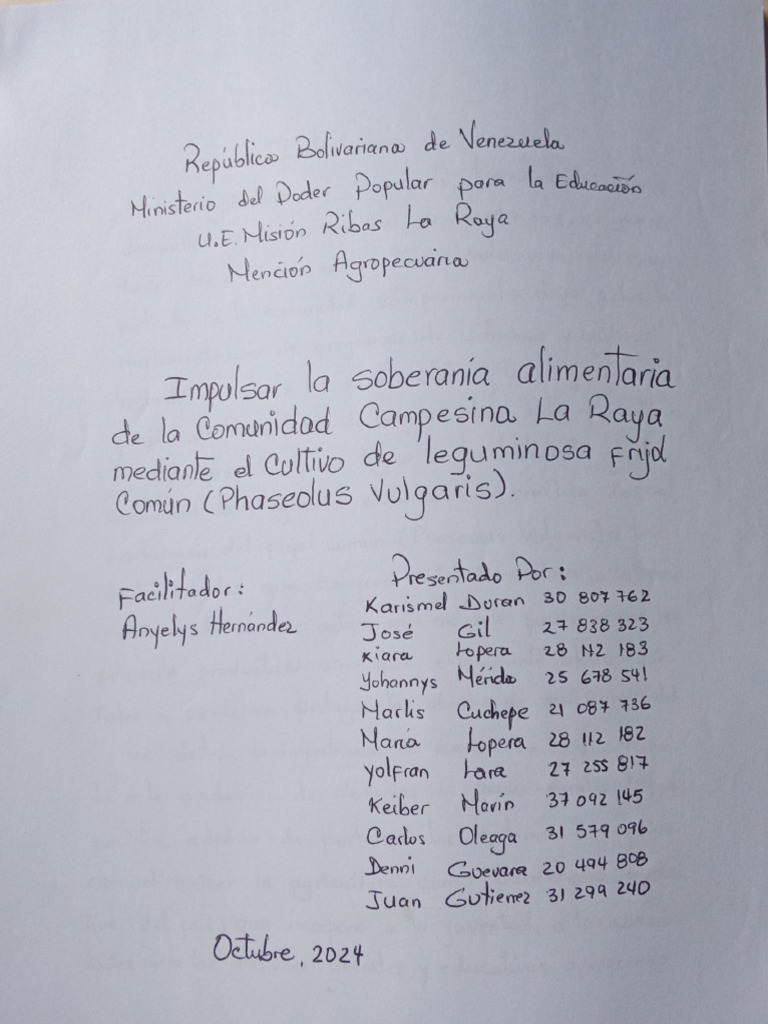 República Bolivariana de Venezuela
Ministerio del Poder Popular para la Educación
U.E. Misión Ribas La Raya
Mención Agropecuaria
Impulsar la soberanía alimentaria
de la Comunidad Campesina La Raya
mediante el Cultivo de leguminosa Frijol
Común (Phaseolus Vulgaris).
Facilitador:
Anyelys Hernández
Presentado Por:
Karismel Duran 30 807 762
José Gil 27 838 323
Kiara Lopera 28 112 183
Yohannys Mérida 25 678 541
Marlis Cuchepe 21 087 736
María Lopera 28 112 182
Yolfran Lara 27 255 817
Keiber Marín 37 092 145
Carlos Oleaga 31 579 096
Denni Guevara 20 494 808
Juan Gutierrez 31 299 240
Octubre, 2024